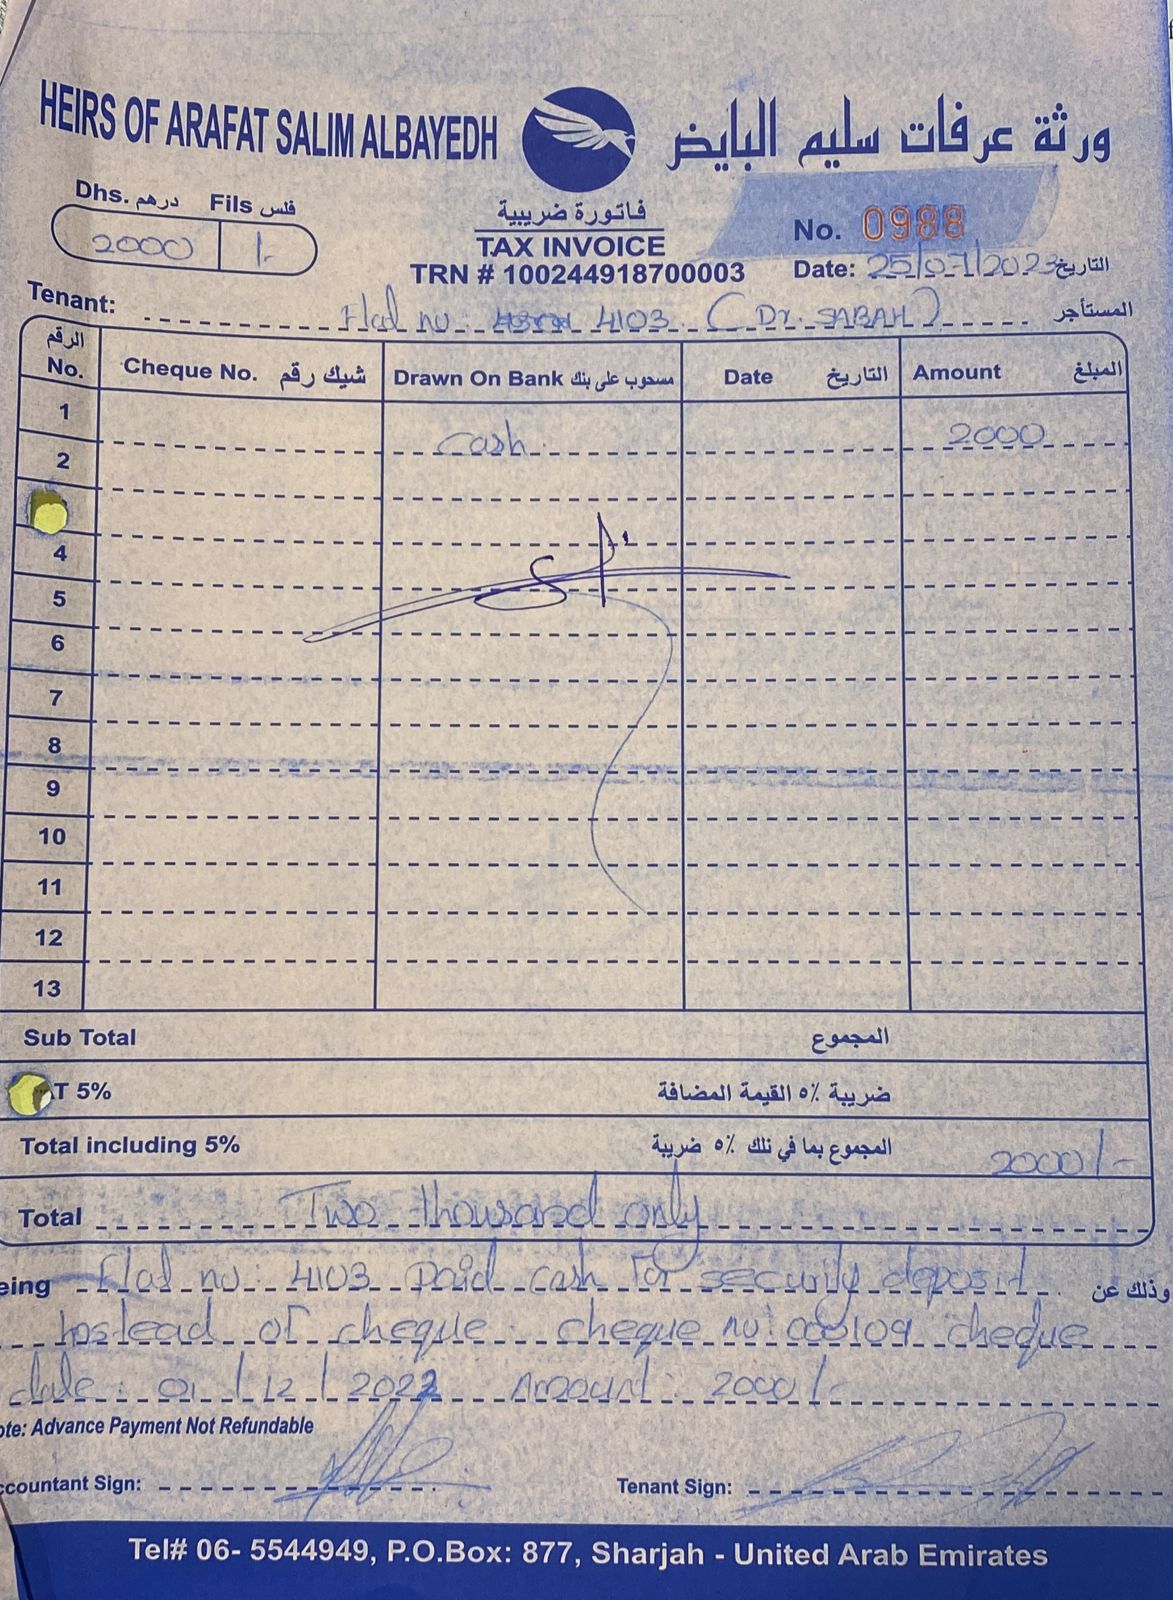 HEIRS OF ARAFAT SALIM ALBAYEDH
ورثة عرفات سليم البايض
Dhs. درهم Fils فلس
2000 /-
فاتورة ضريبية
TAX INVOICE
TRN # 100244918700003
No. 0988
Date: 25/07/2023 التاريخ
Tenant: Flat no: 4103 (Dr. SABAH) المستأجر
الرقم No. Cheque No. شيك رقم Drawn On Bank مسحوب على بنك Date التاريخ Amount المبلغ
1 Cash 2000
2
4
5
6
7
8
9
10
11
12
13
Sub Total المجموع
T 5% ضريبة ٥٪ القيمة المضافة
Total including 5% المجموع بما في ذلك ٥٪ ضريبة 2000/-
Total Two thousand only
eing Flat no: 4103 Paid cash for security deposit وذلك عن
Instead of cheque. cheque no: 000109 cheque
date: 01/12/2022 Amount: 2000/-
ote: Advance Payment Not Refundable
ccountant Sign: Tenant Sign:
Tel# 06- 5544949, P.O.Box: 877, Sharjah - United Arab Emirates